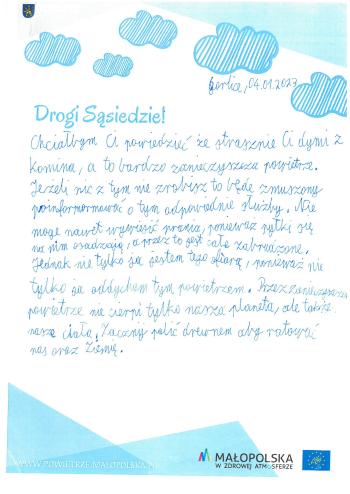 Gorlice, 04.01.2023
Drogi Sąsiedzie!
Chciałbym Ci powiedzieć że strasznie Ci dymi z
komina, a to bardzo zanieczyszcza powietrze.
Jeżeli nic z tym nie zrobisz to będę zmuszony
poinformować o tym odpowiednie służby. Nie
mogę nawet wywiesić prania, ponieważ pyłki się
na nim osadzają, a przez to jest całe zabrudzone.
Jednak nie tylko ja jestem tego ofiarą, ponieważ nie
tylko ja oddycham tym powietrzem. Przez zanieczyszczone
powietrze nie cierpi tylko nasza planeta, ale także
nasze ciała. Zacznij palić drewnem aby ratować
nas oraz Ziemię.
WWW.POWIETRZE.MALOPOLSKA.PL
MAŁOPOLSKA
W ZDROWEJ ATMOSFERZE